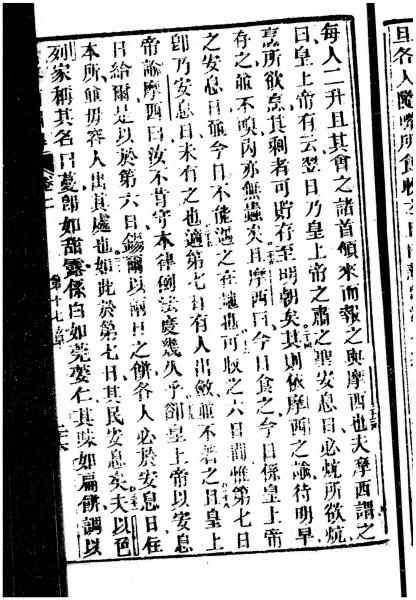 每人二升且其會之諸首領來而報之與摩西也夫摩西謂之
曰皇上帝有云翌日乃皇上帝之肅之聖安息日必炕所欲炕
烹所欲烹其剩者可貯存至明朝矣其則依摩西之諭待明早
存之並不嗅內亦無蟲矣且摩西曰今日食之今日係皇上帝
之安息日爺今日不能遇之在墟也可取之六日間惟第七日
卽乃安息日未有之也適第七日有人出斂並不若之且皇上
帝諭摩西曰汝不肯守本律例法度幾久乎卻皇上帝以安息
日給爾是以於第六日錫爾以兩日之餅各人必於安息日住
本所並毋容人出其處也如此於第七日其民安息矣夫以色
列家稱其名曰蔓卽如甜露係白如莞荽仁其味如扁餅調以
卷二
第十七章
且各人隨嘴所食